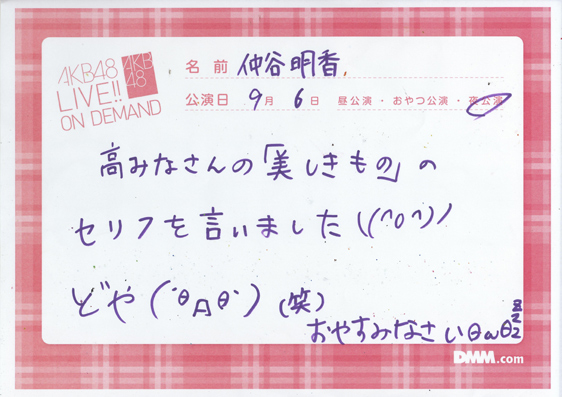 AKB48
LIVE!!
ON DEMAND
AKB
48
名前 仲谷明香.
公演日 9月 6日 昼公演・おやつ公演・夜公演
高みなさんの「美しきもの」の
セリフを言いました\((^o^))/
どや(´θДθ`)(笑)
おやすみなさいθωθzzz
DMM.com